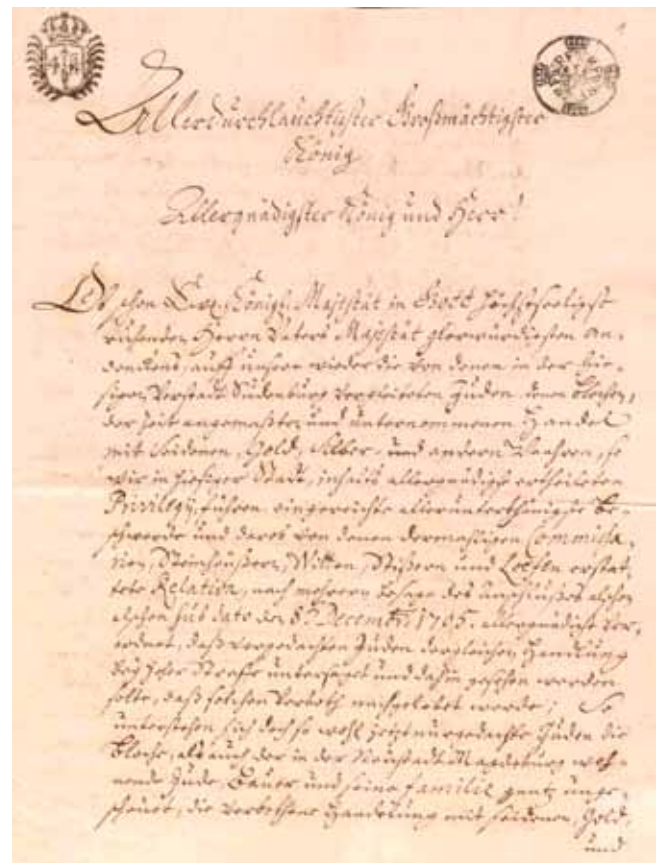 Allerdurchlauchtigster Großmächtigster
König
Allergnädigster König und Herr!
Ob schon Ew. Königl. Majestät in Gott höchstseeligst
ruhenden Herrn Vaters Majestät glorwürdigsten An-
denckens, auff unsere wieder die von denen in der hie-
sigen Vorstadt Sudenburg vergleiteten Juden, denen Blochen,
der Zeit angemaßten und unternommenen Handel
mit Seidenen, Gold, Silber- und andern Waaren, so
wir in hiesiger Stadt, inhalts allergnädigst ertheileten
Privilegij, führen eingereichte allerunterthänigste Be-
schwerde und darob von denen dermahligen Commissa-
rien, Steinhäusern, Witten, Stißern und Loefen erstat-
tete Relation, nach mehrern besage des Anschlußes
sub dato den 8. Decembr: 1705. allergnädigst ver-
ordnet, daß vorgedachten Juden dergleichen Handlung
bey hoher Strafe untersaget und dahin gesehen werden
solte, daß solchen Verboth nachgelebet werde; So
unterstehen sich doch so wohl jetzt nurgedachte Juden die
Bloche, als auch der in der Neustadt Magdeburg woh-
nende Jude, Bauer und seine familie gantz unge-
scheuet, die verbothene Handlung mit Seidenen, Gold,
und